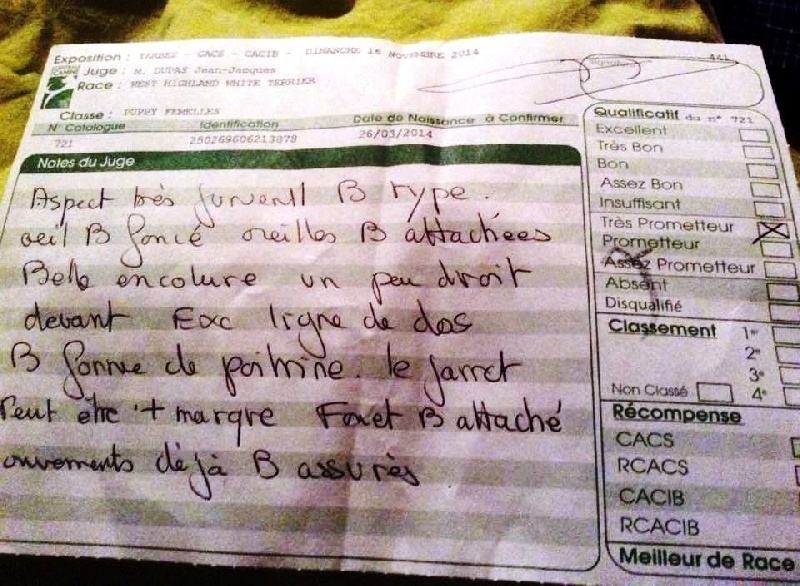 Exposition : TARBES - CACS - CACIB - DIMANCHE 16 NOVEMBRE 2014
Juge : M. DUPAS Jean-Jacques
Race : WEST HIGHLAND WHITE TERRIER
Classe : PUPPY FEMELLES
N° Catalogue Identification Date de Naissance à Confirmer
721 250269606213878 26/03/2014
Notes du Juge
Aspect très juvenil B type.
oeil B foncé oreilles B attachées
Belle encolure un peu droit
devant Exc ligne de dos
B forme de poitrine. le jarret
Peut être + marqué Fouet B attaché
mouvements déjà B assurés
Qualificatif du n° 721
Excellent
Très Bon
Bon
Assez Bon
Insuffisant
Très Prometteur
Prometteur
Assez Prometteur
Absent
Disqualifié
Classement 1er
2e
3e
Non Classé 4e
Récompense
CACS
RCACS
CACIB
RCACIB
Meilleur de Race